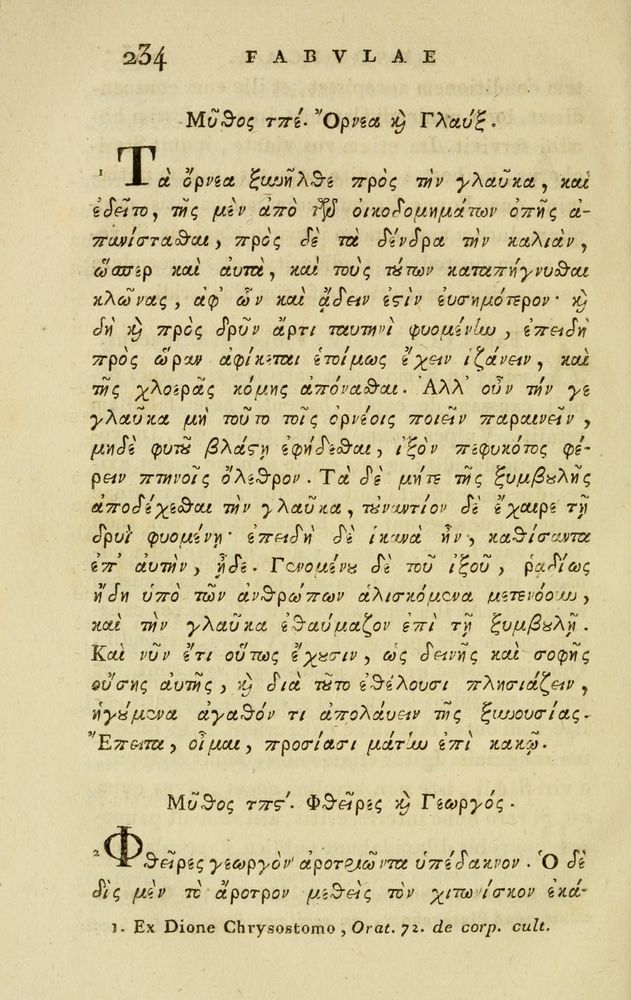 234 FABVLAE
Μῦθος τπέ. Ὄρνεα καὶ Γλαύξ.
1 Τὰ ὄρνεα ξυνῆλθε πρὸς τὴν γλαῦκα, καὶ
ἐδεῖτο, τῆς μὲν ἀπὸ τῶν οἰκοδομημάτων ὀπῆς ἀ-
πανίστασθαι, πρὸς δὲ τὰ δένδρα τὴν καλιὰν,
ὥσπερ καὶ αὐτὰ, καὶ τοὺς τούτων καταπήγνυσθαι
κλῶνας, ἀφ' ὧν καὶ ᾄδειν ἐστὶν εὐσημότερον· καὶ
δὴ καὶ πρὸς δρῦν ἄρτι ταυτηνὶ φυομένην, ἐπειδὴ
πρὸς ὥραν ἀφίκεται ἑτοίμως ἔχειν ἱζάνειν, καὶ
τῆς χλοερᾶς κόμης ἀπόνασθαι. Ἀλλ' οὖν τήν γε
γλαῦκα μὴ τοῦτο τοῖς ὀρνέοις ποιεῖν παραινεῖν,
μηδὲ φυτοῦ βλάστῃ ἐφήδεσθαι, ἰξὸν πεφυκότος φέ-
ρειν πτηνοῖς ὄλεθρον. Τὰ δὲ μήτε τῆς ξυμβουλῆς
ἀποδέχεσθαι τὴν γλαῦκα, τοὐναντίον δὲ ἔχαιρε τῇ
δρυῒ φυομένῃ· ἐπειδὴ δὲ ἱκανὰ ἦν, καθίσαντα
ἐπ' αὐτὴν, ᾖδε. Γενομένου δὲ τοῦ ἰξοῦ, ῥᾳδίως
ἤδη ὑπὸ τῶν ἀνθρώπων ἁλισκόμενα μετενόουν,
καὶ τὴν γλαῦκα ἐθαύμαζον ἐπὶ τῇ ξυμβουλῇ.
Καὶ νῦν ἔτι οὕτως ἔχουσιν, ὡς δεινῆς καὶ σοφῆς
οὔσης αὐτῆς, καὶ διὰ τοῦτο ἐθέλουσι πλησιάζειν,
ἡγούμενα ἀγαθόν τι ἀπολαύειν τῆς ξυνουσίας.
Ἔπειτα, οἶμαι, προσίασι μάτην ἐπὶ κακῷ.
Μῦθος τπϛ'. Φθεῖρες καὶ Γεωργός.
2 Φθεῖρες γεωργὸν ἀροτριῶντα ὑπέδακνον. Ὁ δὲ
δὶς μὲν τὸ ἄροτρον μεθεὶς τὸν χιτωνίσκον ἐκά-
1. Ex Dione Chrysostomo, Orat. 72. de corp. cult.